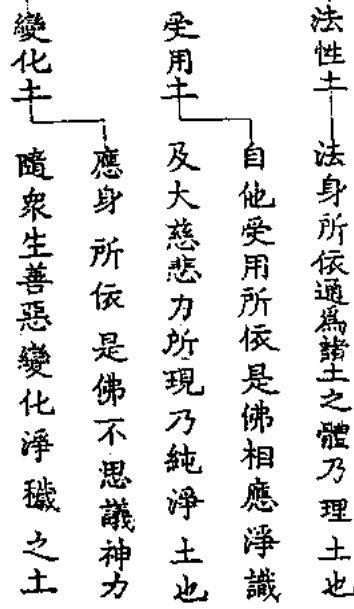 法性土 法身所依通爲諸土之體乃理土也
受用土 自他受用所依是佛相應淨識
及大慈悲力所現乃純淨土也
變化土 應身所依是佛不思議神力
隨衆生善惡變化淨穢之土